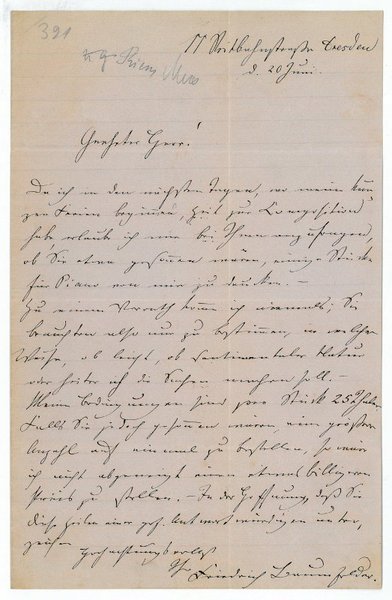 391
17 Reitbahnstraße Dresden
d. 20 Juni.
Geehrter Herr!
Da ich in den nächsten Tagen, wo meine kur-
zen Ferien beginnen, Zeit zur Composition
habe erlaube ich mir bei Ihnen anzufragen,
ob Sie etwa gesonnen wären, einige Stücke
für Piano von mir zu drucken. –
Zu einem Vorrath komme ich niemals; Sie
brauchten also nur zu bestimmen, in welcher
Weise, ob leicht, ob sentimentaler Natur
oder heiter ich die Sachen machen soll. –
Meine Bedingungen sind pro Stück 25 Thaler.
Falls Sie jedoch gesonnen wären, eine größere
Anzahl auf einmal zu bestellen, so wäre
ich nicht abgeneigt einen etwas billigeren
Preis zu stellen. – In der Hoffnung, daß Sie
diese Zeilen einer gef. Antwort würdigen unter-
zeichne
Hochachtungsvollst
Ihr
Friedrich Baumfelder.